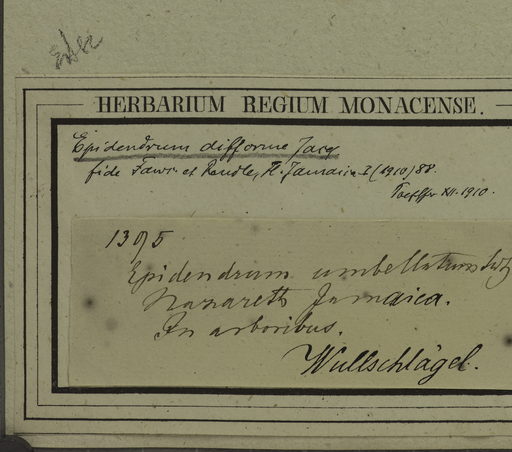 HERBARIUM REGIUM MONACENSE.
Epidendrum difforme Jacq
fide Fawc. et Rendle, Fl. Jamaica I (1910) 88.
XII. 1910.
1305
Epidendrum umbellatum Sw
Nazareth Jamaica.
In arboribus.
Wullschlägel.